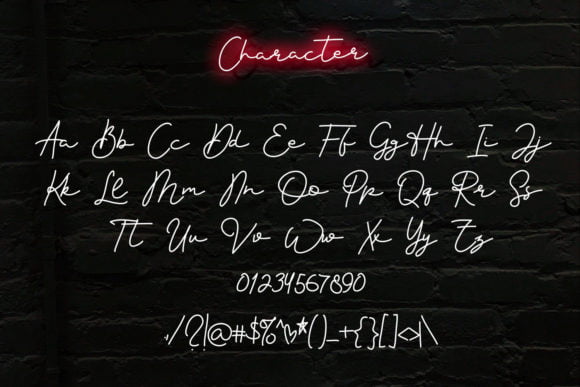 Character
Aa Bb Cc Dd Ee Ff Gg Hh Ii Jj
Kk Ll Mm Nn Oo Pp Qq Rr Ss
Tt Uu Vv Ww Xx Yy Zz
01234567890
./?!@#$%^&*()_+{}[]<>|\